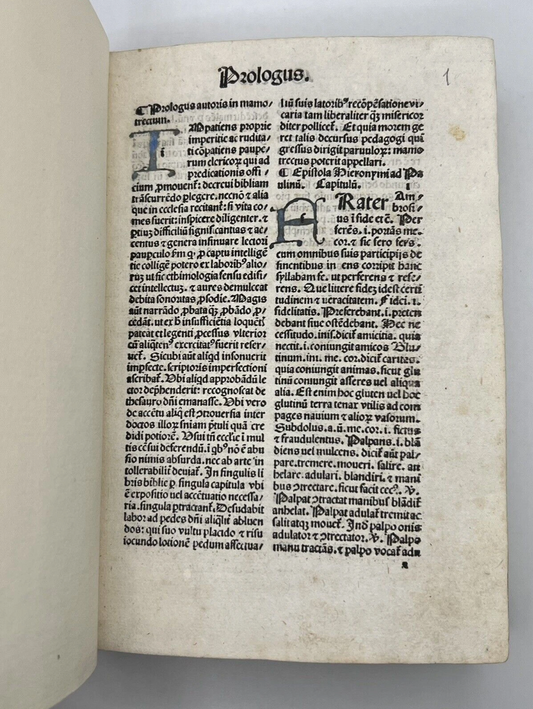 Prologus.
1
¶ Prologus autoris in mamo⸗
trectum.
IMpatiens proprie
imperitie ac rudita
ti cōpatiens paupe⸗
rum clericoꝝ qui ad
predicationis offi⸗
cium ꝓmouent᷑: decreui bibliam
trāscurrēdo ꝑlegere. necnō ⁊ alia
que in ecclesia recitant᷑: si vita co⸗
mes fuerit: inspicere diligenter. ⁊
ptiū difficiliū significantias ⁊ ac⸗
centus ⁊ genera insinuare lectori
paupculo ꝑ captu intelligē
tie colligē potero ex laboribꝰ alio/
ꝝ ut sic ethimologia sensu edisi⸗
cet intellectus. ⁊ aures demulceat
debita sonoritas ꝓsodie. Magis
aūt narrādo
cedāt. ut ex insufficiētia loquent᷑
pateat ⁊ legenti ꝓcessus vlterior
cū exercitatꝰ fuerit reser⸗
uet᷑. Sicubi aūt aliqd insonuerit
impfecte. scriptoris imperfectioni
ascribat᷑. Vbi aliqd approbādū le
ctor dephenderit: recognoscat de
thesauro dñi emanasse. Vbi vero
de accētu aliq est ꝯtrouersia inter
doctos illoꝝ sniam ptuli qua cre
didi potiorē. Vsui tñ ecclie i mul
tis cēsui deferendū. nō ē abu
sio nimis absurda. nec ab arte in
tollerabilit᷑ deuiat᷑. In singulis li
bris biblie ꝑ singula capitula vbi
ē expositio uel accētuatio necessa/
ria. singula ptractant᷑. Desudabit
labor ad pedes dñi abluen
dos: qui suo vultu placido ⁊ risu
iocundo lotionē pedum affectua⸗
liū suis latoribꝰ recōpēsatione vi⸗
caria tam liberaliter qꝫ misericor
diter pollicet᷑. Et quia morem ge
ret talis decursus pedagogi qui
gressus dirigit paruuloꝝ: mamo
trectus poterit appellari.
¶ Epistola Hieronymi ad Pa
ulinū. Capitulū. I
FRater Am
brosi⸗
us i fide etc. Per
ferēs. i. portās me.
cor. ⁊ sic fero fers.
cum omnibus suis participijs de
sinentibus in ens corripit hanc
syllabam fe. ut perferens ⁊ refe⸗
rens. Que litere fidez idest certi
tudinem ⁊ veracitatem. Fidei. i.
fidelitatis. Preferebant. i. preten
debant siue ostēdebant. Hec ne⸗
cessitudo. inis. dicit᷑ amicitia. quia
nectit. i. coniungit amicos. Glu⸗
tinum. ini. me. cor. dicit᷑ caritas.
quia coniungit animas. sicut glu
tinū coniungit asseres uel aliqua
alia. Est enim hoc gluten uel hoc
glutinū terra tenax vtilis ad com
pages nauium ⁊ alioꝝ vasorum.
Subdolus. a. ū. me. cor. i. fictus
⁊ fraudulentus. Palpans. i. blā
diens uel mulcens. dicit᷑ aūt pal⸗
pare. tremere. moueri. salire. an
helare. adulari. blandiri. ⁊ mani
bus ꝯtrectare. sicut facit cecꝰ. V.
Palpat ꝯtractat manibus blādit᷑
anhelat. Palpat adulat᷑ tremit ac
salit atqꝫ mouet᷑. Inde palpo onis
adulator ⁊ ꝯtrectator. V. Palpo
manu tractās. ⁊ palpo vocat᷑ adu
a